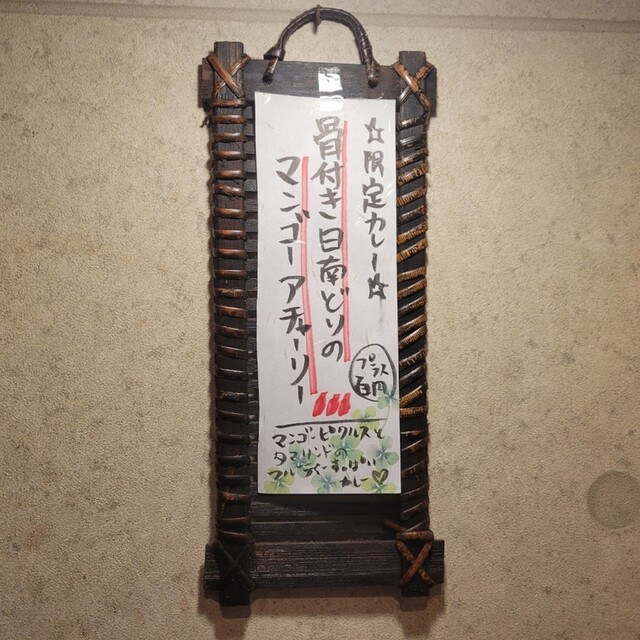 ☆限定カレー☆
骨付き日南どりの
マンゴーアチャーリー
プラス
百円
マンゴーピクルスと
タマリンドの
フルーティーすっぱい
カレー♡